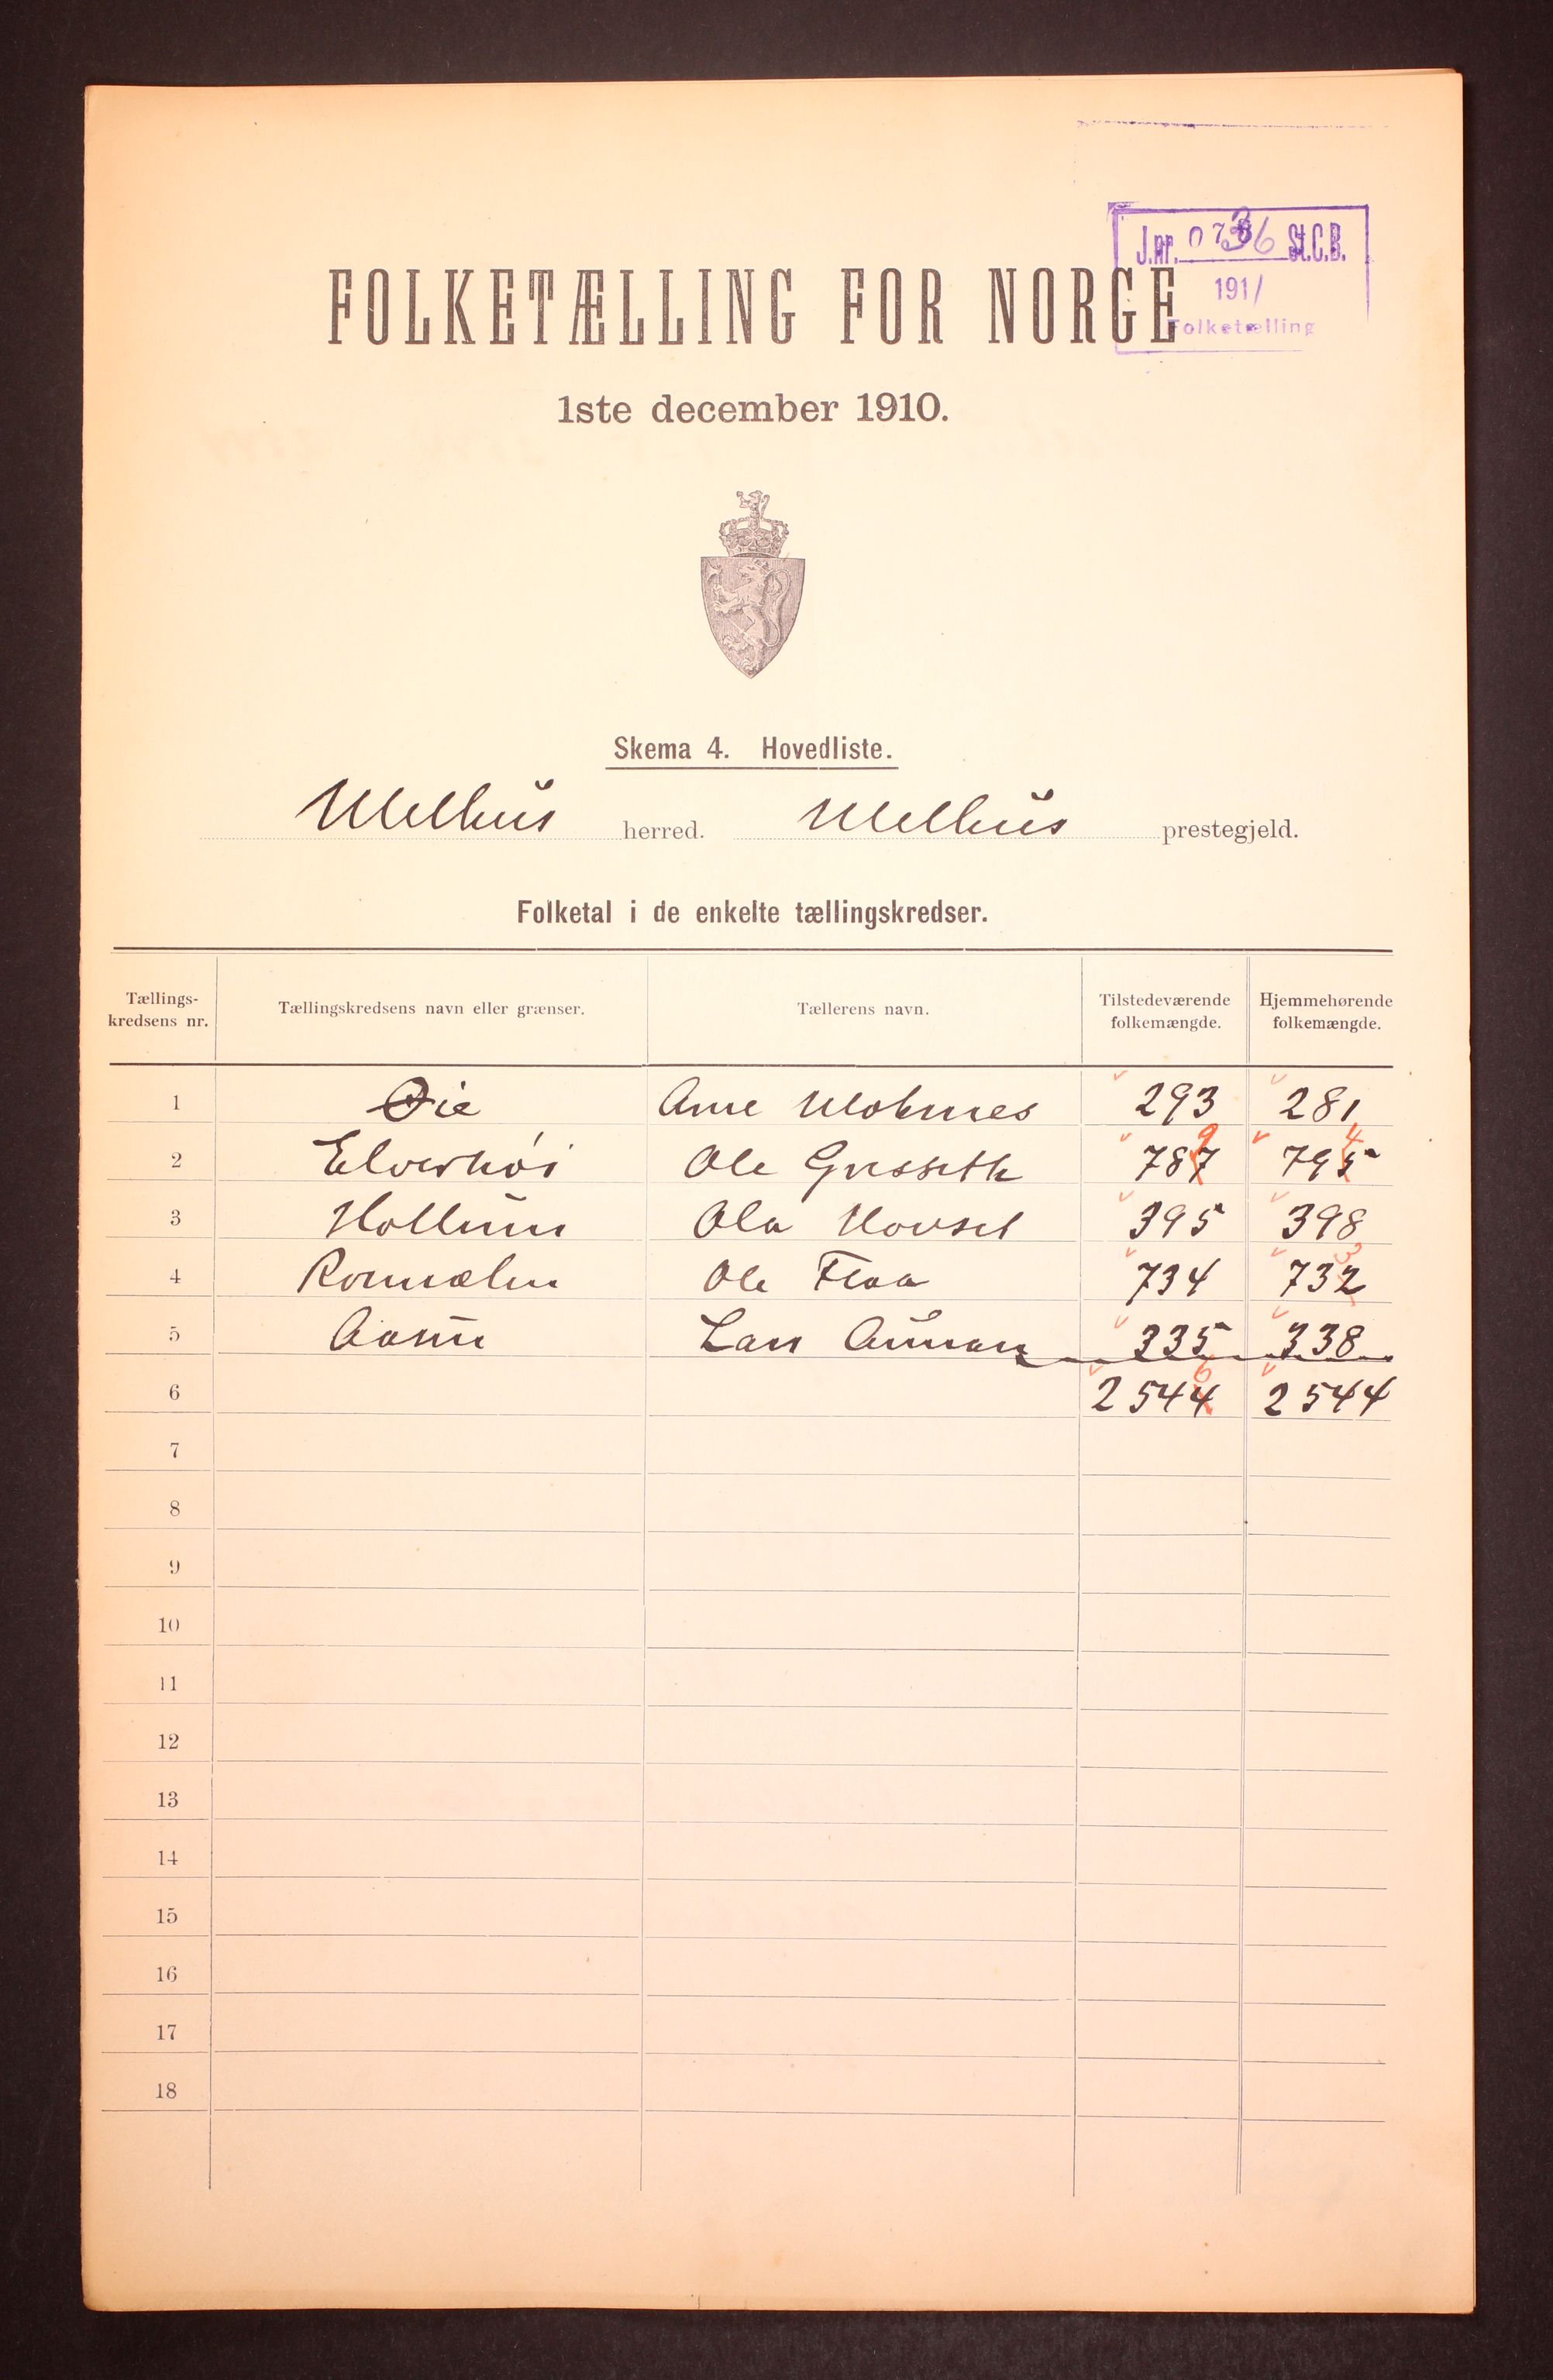 J.nr. 0736 St.C.B.
191/
Folketælling
FOLKETÆLLING FOR NORGE
1ste december 1910.
Skema 4. Hovedliste.
Melhus herred. Melhus prestegjeld.
Folketal i de enkelte tællingskredser.
Tællings-kredsens nr. Tællingskredsens navn eller grænser. Tællerens navn. Tilstedeværende folkemængde. Hjemmehørende folkemængde.
1 Øie Arne 293 281
2 Elverhøi Ole 787 9 795 4
3 Hollum Ola Hovsel 395 398
4 Ole Flaa 734 732 3
5 Lars 335 338
6 2544 6 2544
7
8
9
10
11
12
13
14
15
16
17
18